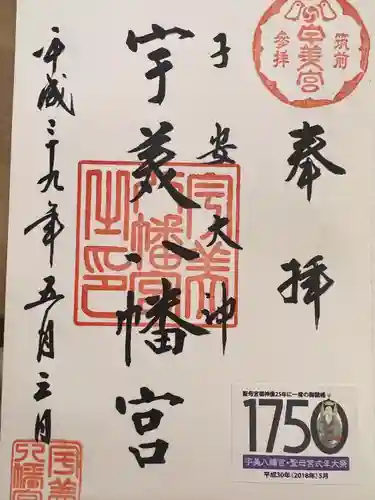 筑前
宇美宮
參拝
奉拝
子安大神
宇美八幡宮
宇美八幡宮之印
平成二十九年五月三日
聖母宮御神像25年に一度の御開帳
1750
宇美八幡宮・聖母宮式年大祭
平成30年(2018年)5月